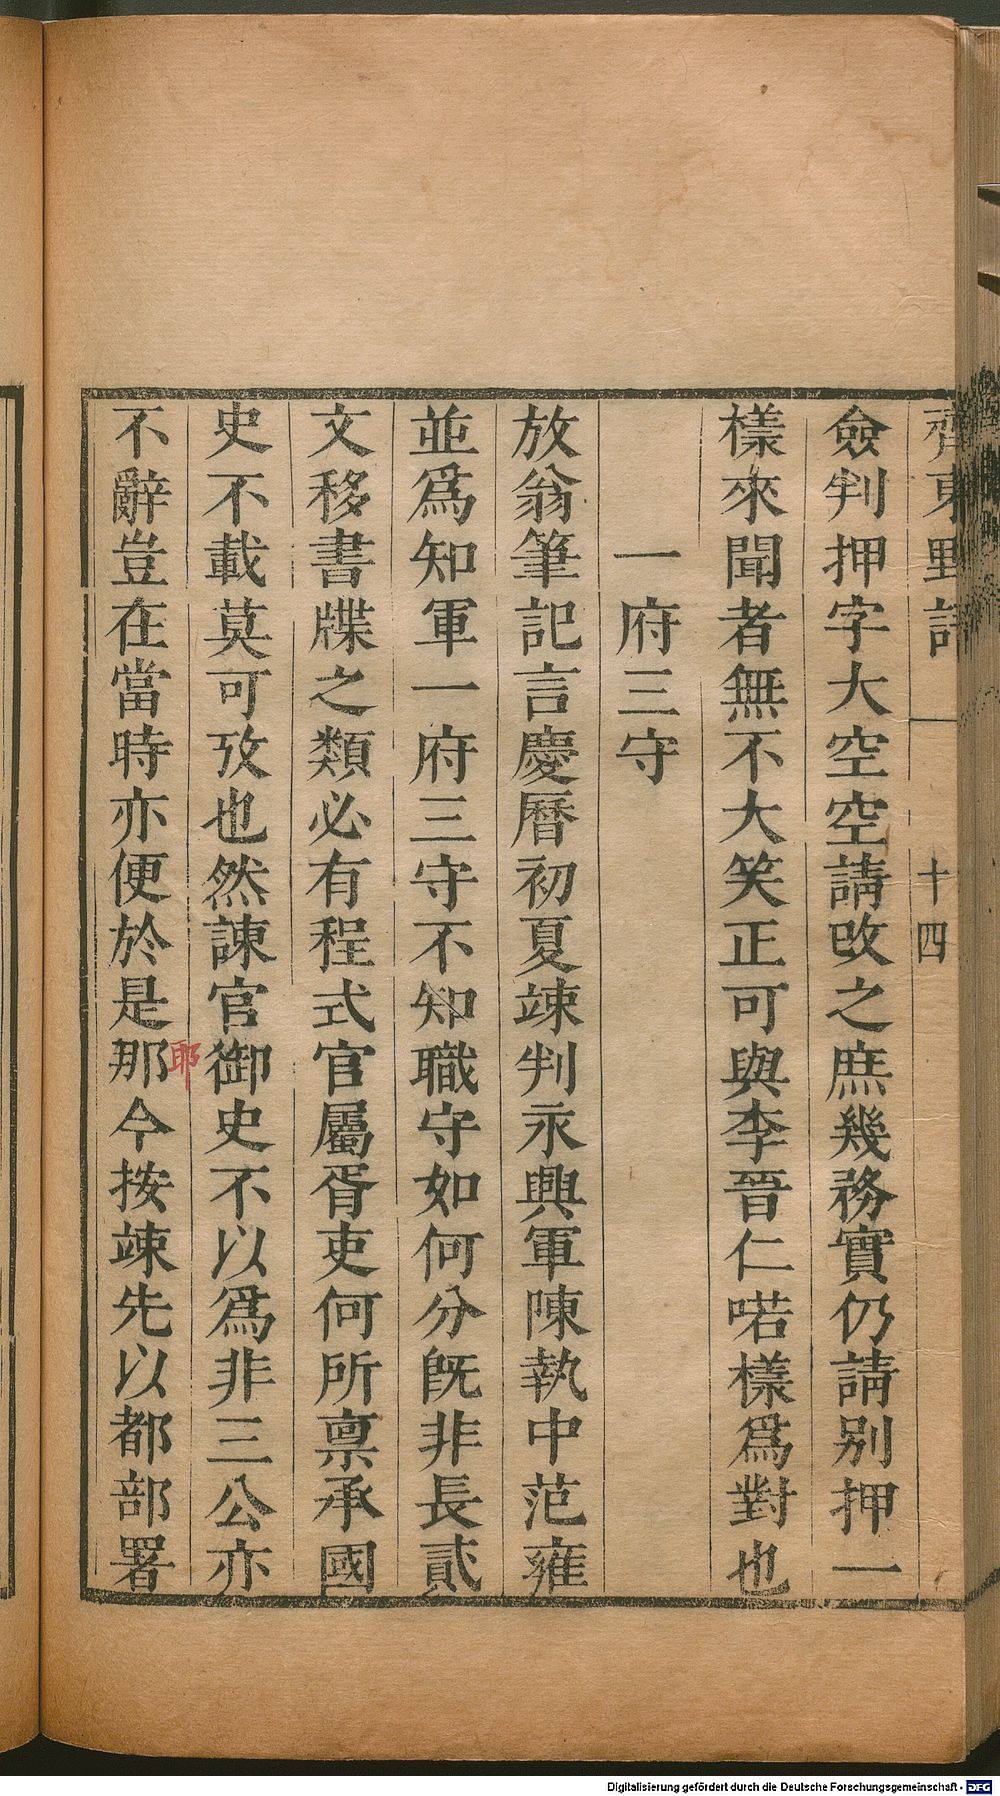 齊東野語 一 十四
僉判押字大空空請改之庶幾務實仍請別押一
樣來聞者無不大笑正可與李晉仁喏樣爲對也
一府三守
放翁筆記言慶曆初夏竦判永興軍陳執中范雍
並爲知軍一府三守不知職守如何分旣非長貳
文移書牒之類必有程式官屬胥吏何所禀承國
史不載莫可攷也然諫官御史不以爲非三公亦
耶
不辭豈在當時亦便於是那今按竦先以都部署
Digitalisierung gefördert durch die Deutsche Forschungsgemeinschaft - DFG